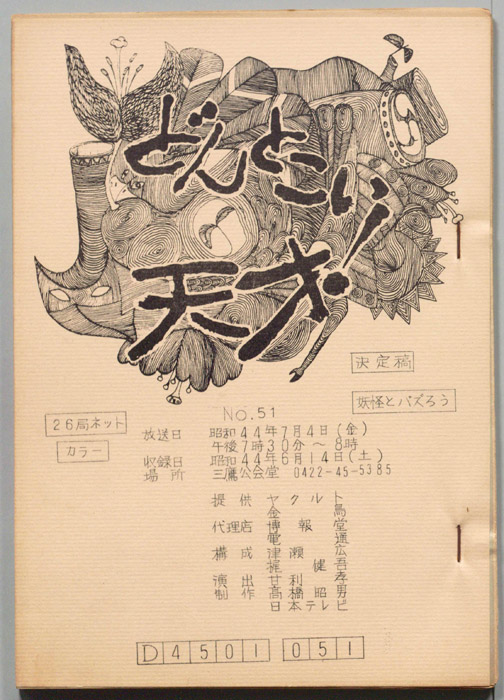 どんとこい
天才!
決定稿
妖怪とパズろう
26局ネット
カラー
No.51
放送日 昭和44年7月4日(金)
午後7時30分～8時
収録日 昭和44年6月14日(土)
場所 三鷹公会堂 0422-45-5385
提供 ヤクルト
金鳥
代理店 博報堂
電通
構成 津瀬広
梶健吾
演出 甘利孝
制作 高橋昭男
日本テレビ
D4501 051